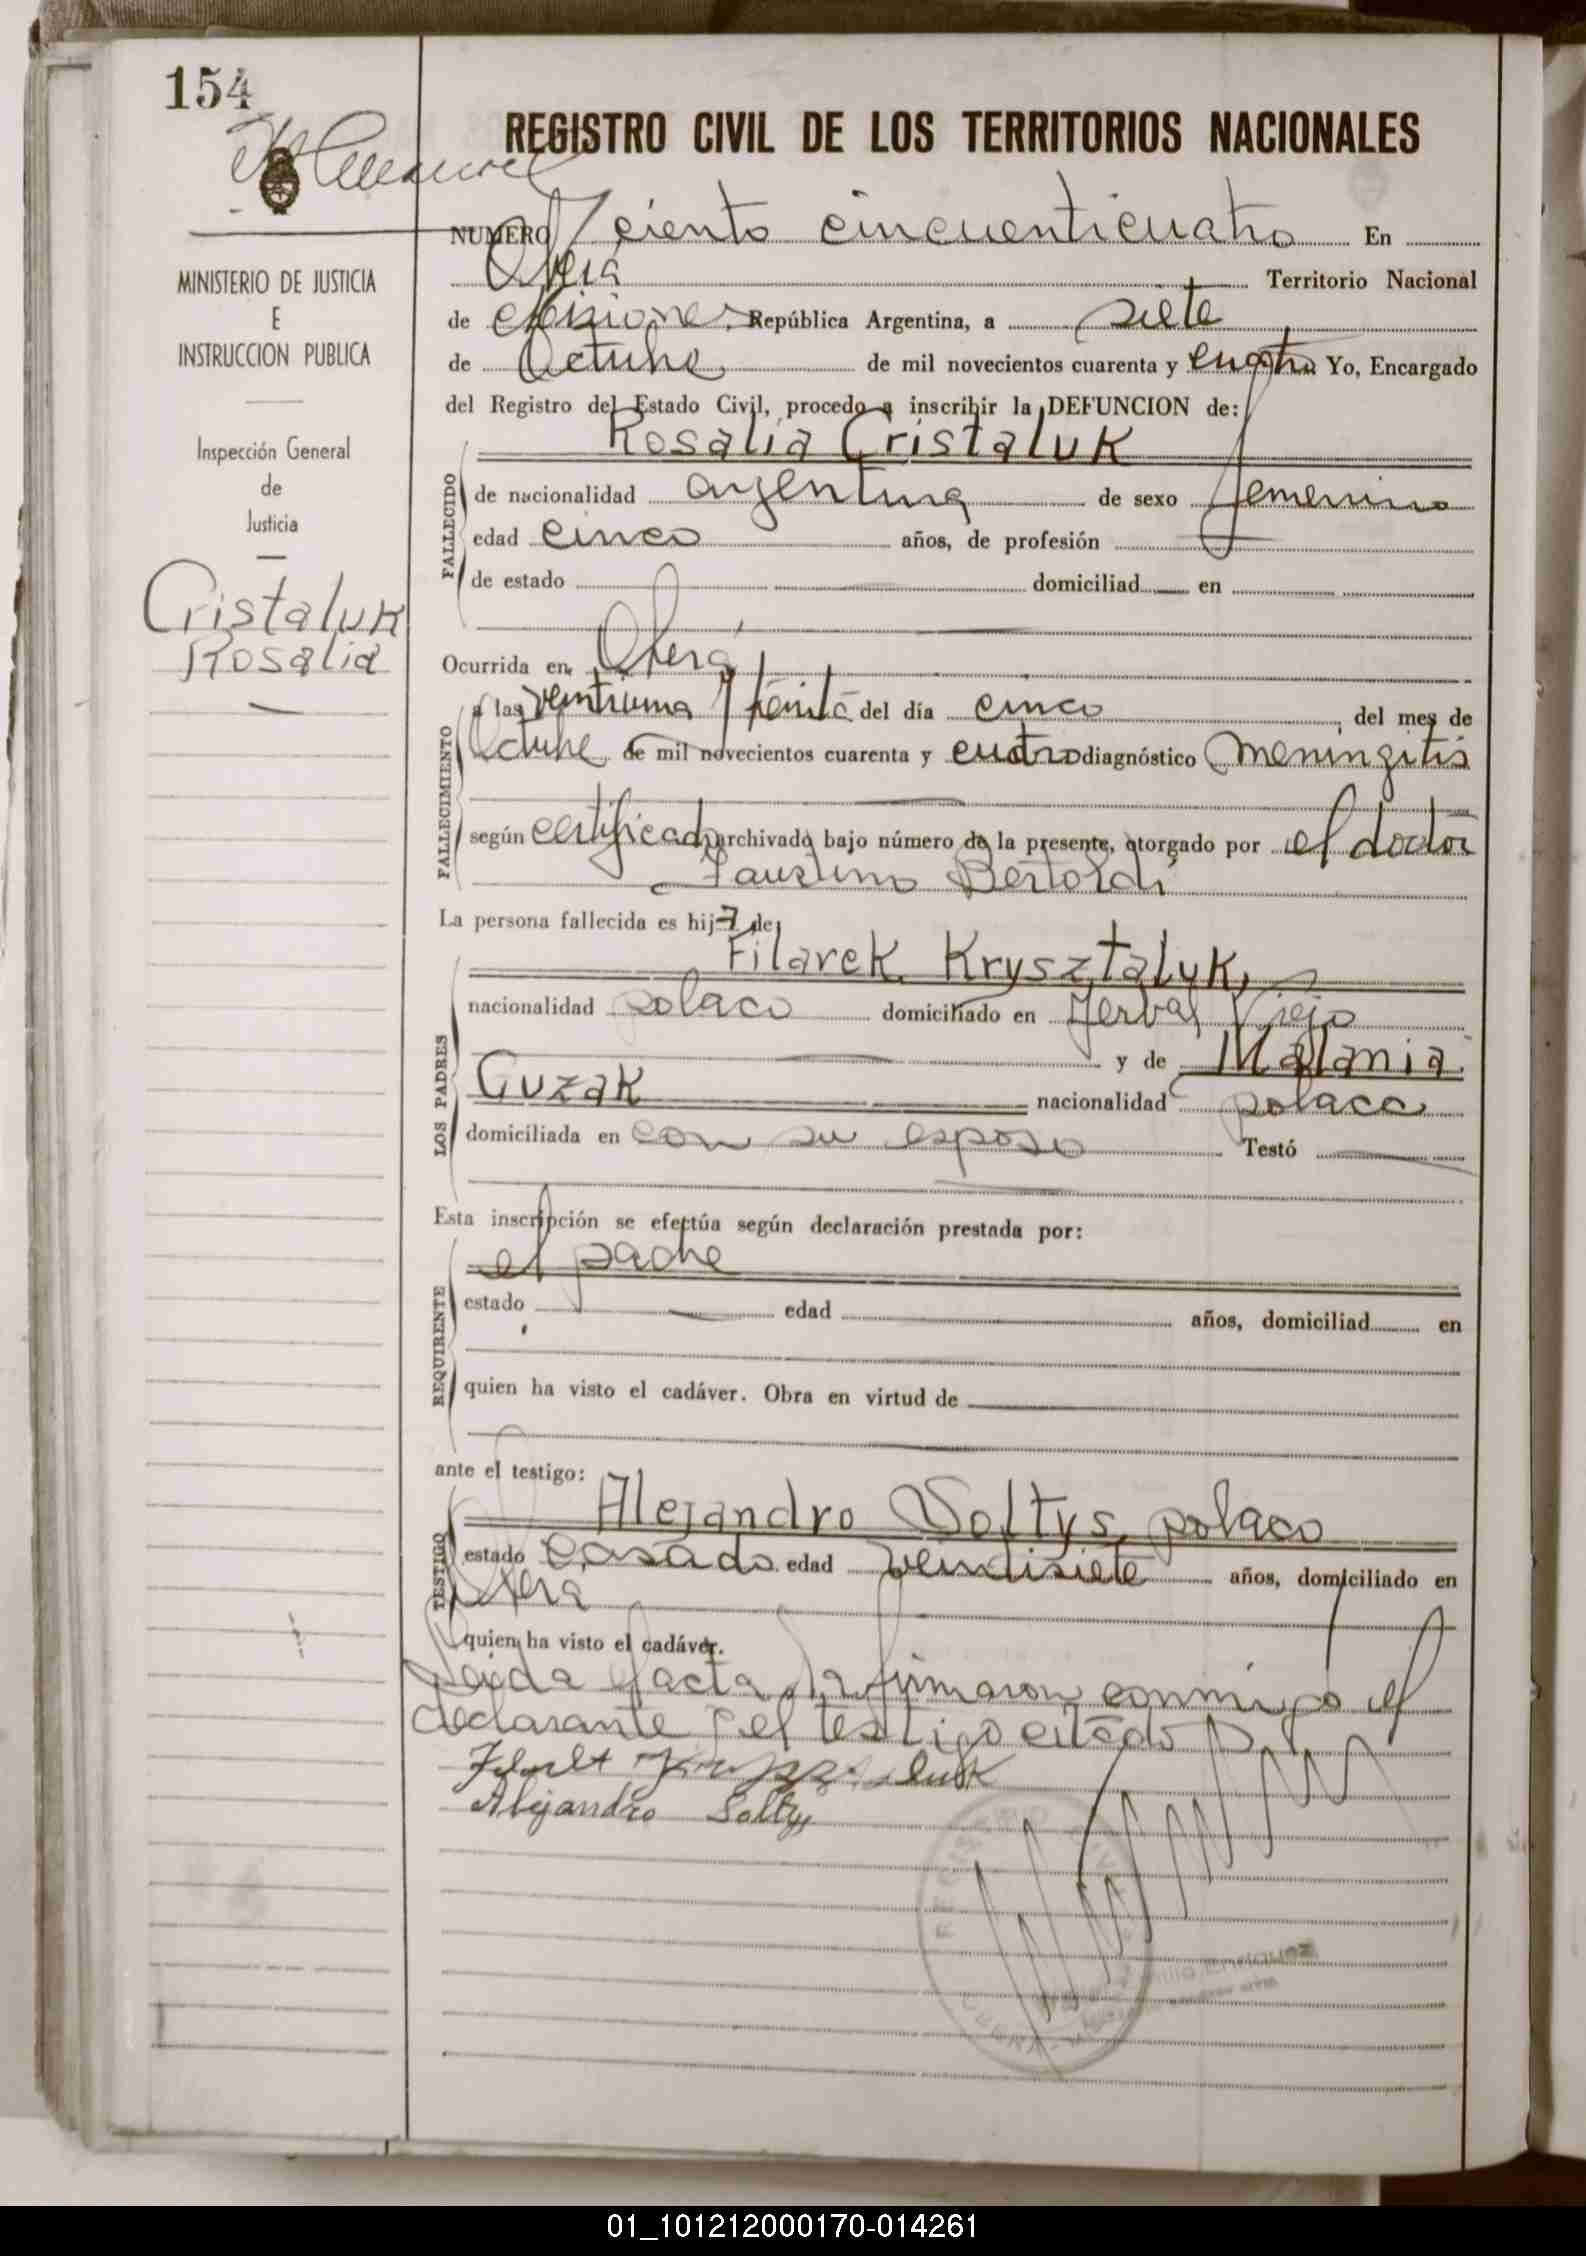 154
REGISTRO CIVIL DE LOS TERRITORIOS NACIONALES
MINISTERIO DE JUSTICIA
E
INSTRUCCION PUBLICA
Inspección General
de
Justicia
Cristaluk
Rosalia
NUMERO ciento cincuenticuatro En
Oberá Territorio Nacional
de Misiones República Argentina, a siete
de Octubre de mil novecientos cuarenta y cuatro Yo, Encargado
del Registro del Estado Civil, procedo a inscribir la DEFUNCION de:
Rosalia Cristaluk
FALLECIDO
de nacionalidad argentina de sexo femenino
edad cinco años, de profesión
de estado domiciliad en
Ocurrida en Oberá
FALLECIMIENTO
a las ventiuna y treinta del día cinco del mes de
Octubre de mil novecientos cuarenta y cuatro diagnóstico meningitis
según certificado archivado bajo número de la presente, otorgado por el doctor
Faustino Bertoldi
La persona fallecida es hija de
LOS PADRES
Filarek Krysztaluk,
nacionalidad polaco domiciliado en Yerbal Viejo
y de Malania
Guzak nacionalidad polaca
domiciliada en con su esposo Testó
Esta inscripción se efectúa según declaración prestada por:
REQUIRENTE
el padre
estado edad años, domiciliad en
quien ha visto el cadáver. Obra en virtud de
ante el testigo:
TESTIGO
Alejandro Soltys, polaco
estado casado edad ventisiete años, domiciliado en
Oberá
quien ha visto el cadáver.
Leida el acta la firmaron conmigo el
declarante y el testigo citado
Alejandro Soltys
REGISTRO CIVIL
01_101212000170-014261